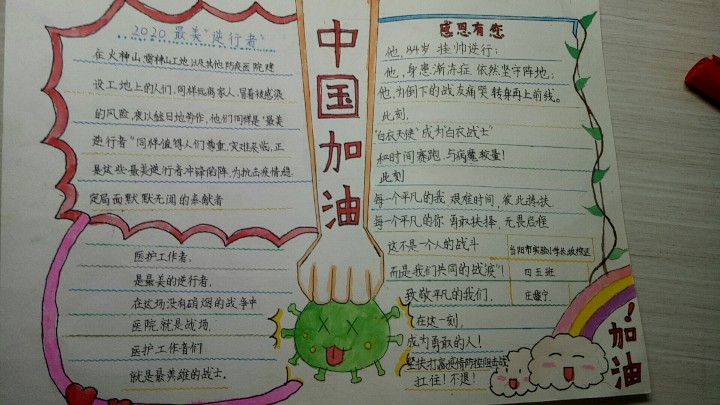 2020最美"逆行者"
在火神山,雷神山工地以及其他防疫医院建
设工地上的人们,同样远离家人,冒着被感染
的风险,夜以继日地劳作,他们同样是"最美
逆行者"同样值得人们尊重,灾难来临,正
是这些最美逆行者冲锋陷阵,为抗击疫情稳
定局面默默无闻的奉献者
医护工作者,
是最美的逆行者,
在这场没有硝烟的战争中
医院就是战场,
医护工作者们
就是最英雄的战士,
中国加油
感恩有您
他,84岁 挂帅逆行;
他,身患渐冻症 依然坚守阵地;
他,为倒下的战友痛哭 转身再上前线。
此刻,
"白衣天使"成为"白衣战士"
和时间赛跑 与病魔较量!
此刻
每一个平凡的我 艰难时间,彼此搀扶
每一个平凡的你 勇敢抉择,无畏启程
这不是一个人的战斗
而是我们共同的战"疫"!
致敬平凡的我们,
在这一刻,
成为勇敢的人!
坚决打赢疫情防控阻击战
扛住!不退!
当阳市实验小学长坂校区
四五班
加油!